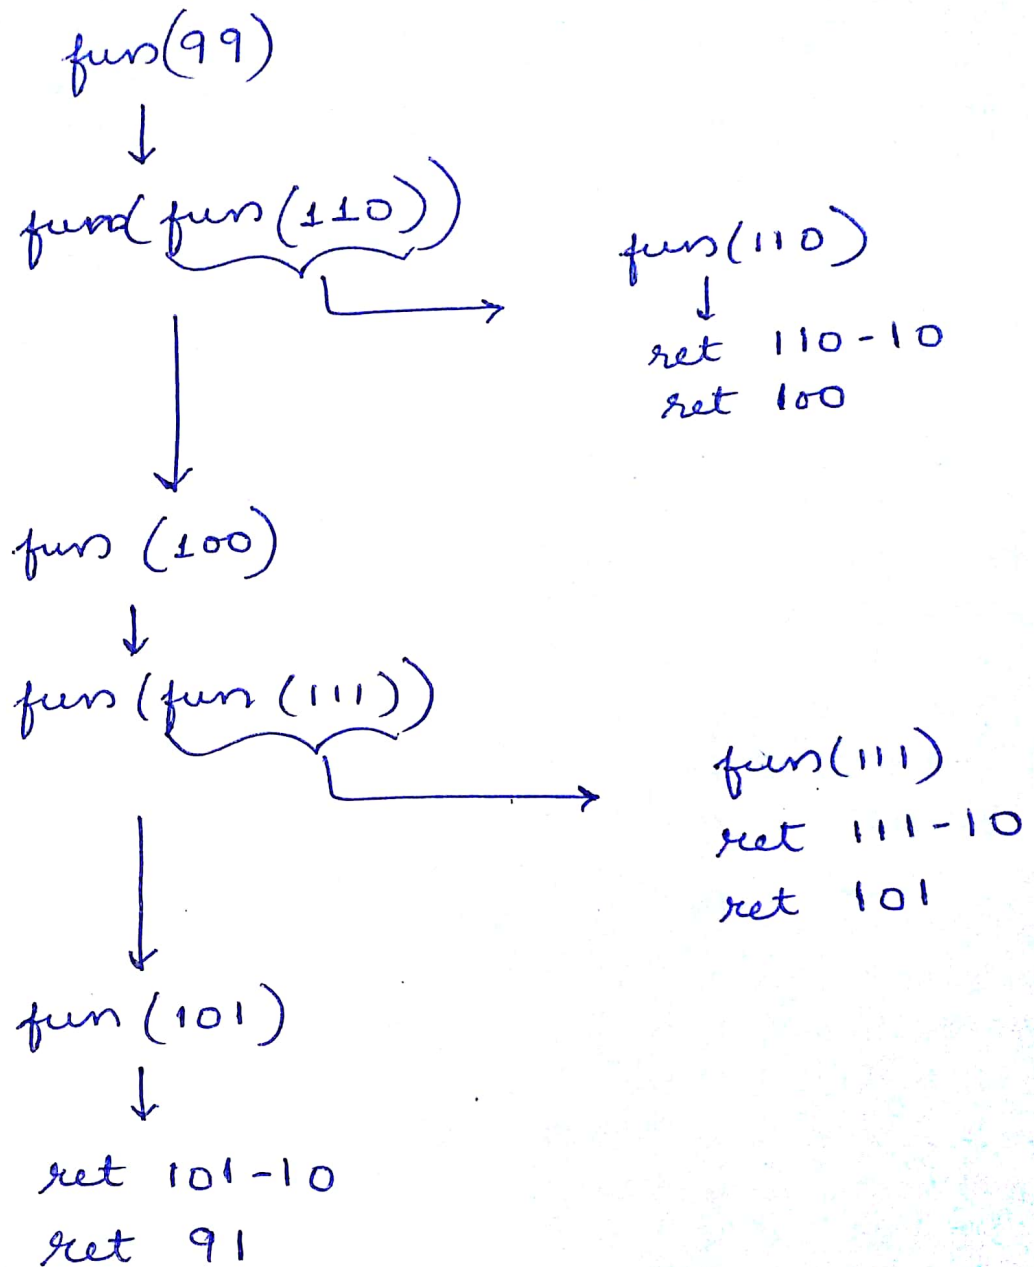 fun(99)
fun(fun(110))
fun(110)
ret 110-10
ret 100
fun (100)
fun (fun (111))
fun(111)
ret 111-10
ret 101
fun (101)
ret 101-10
ret 91